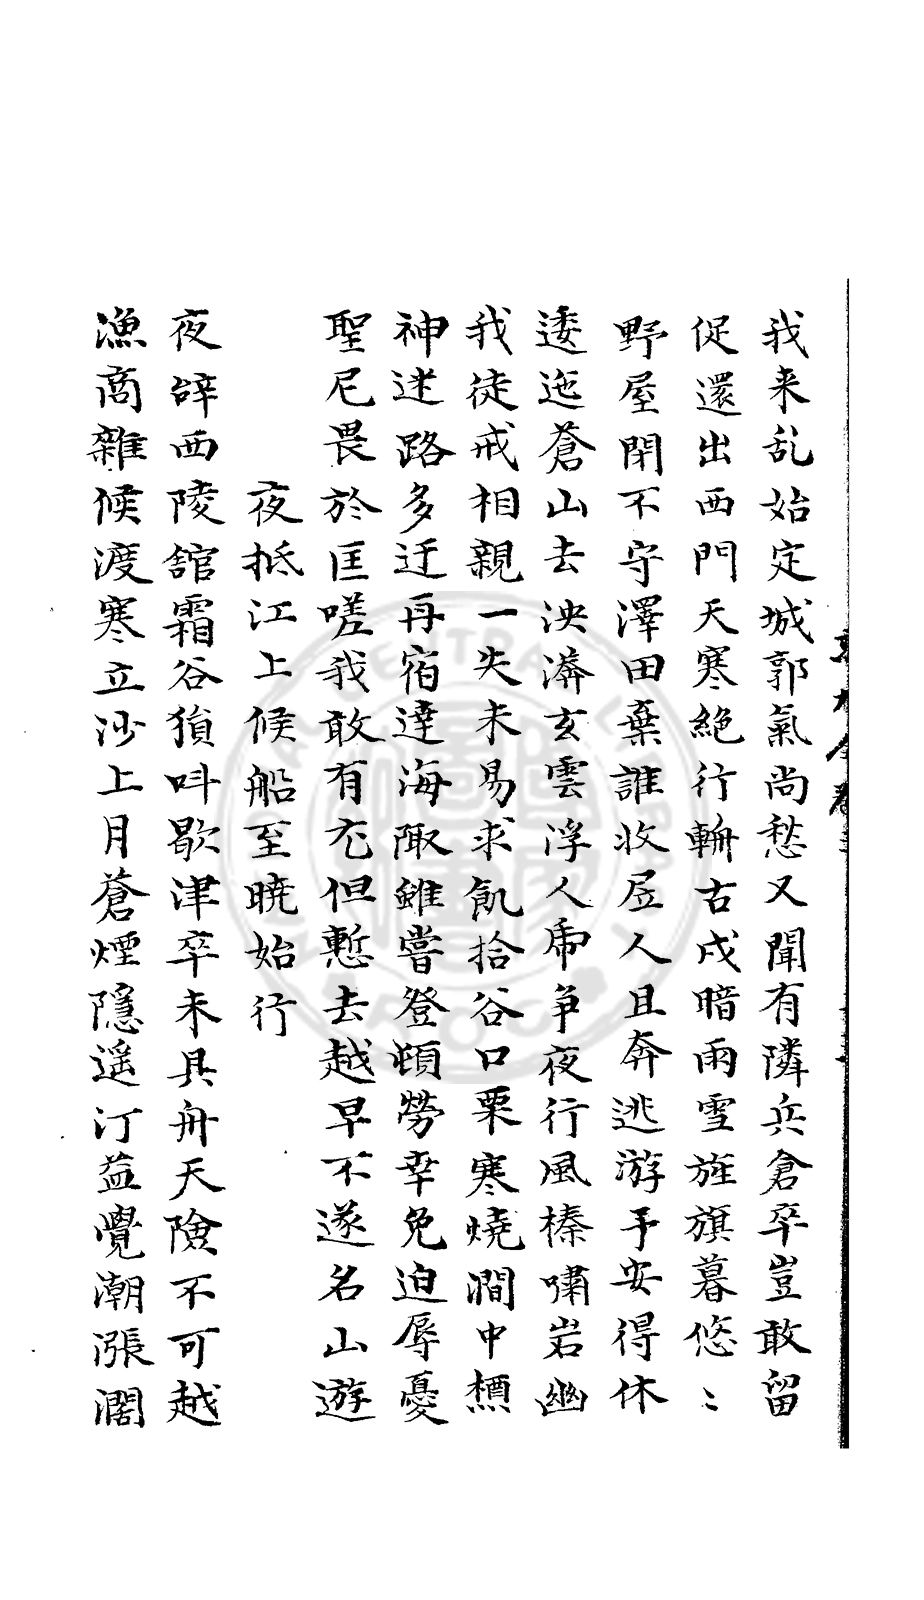 我来乱始定城郭氣尚愁又聞有隣兵倉卒豈敢留
促還出西門天寒絶行輈古戍暗雨雪旌旗暮悠〻
野屋閉不守澤田棄誰收居人且奔逃游子安得休
逶迤蒼山去泱漭玄雲浮人虎爭夜行風榛嘯岩幽
我徒戒相親一失未易求飢拾谷口栗寒燒澗中槱
神迷路多迂再宿達海陬雖嘗登頓勞幸免迫辱憂
聖尼畏於匡嗟我敢有尤但慙去越早不遂名山遊
夜抵江上候船至曉始行
夜辞西陵舘霜谷猿呌歇津卒未具舟天險不可越
漁商雜候渡寒立沙上月蒼煙隱遥汀益覺潮漲濶